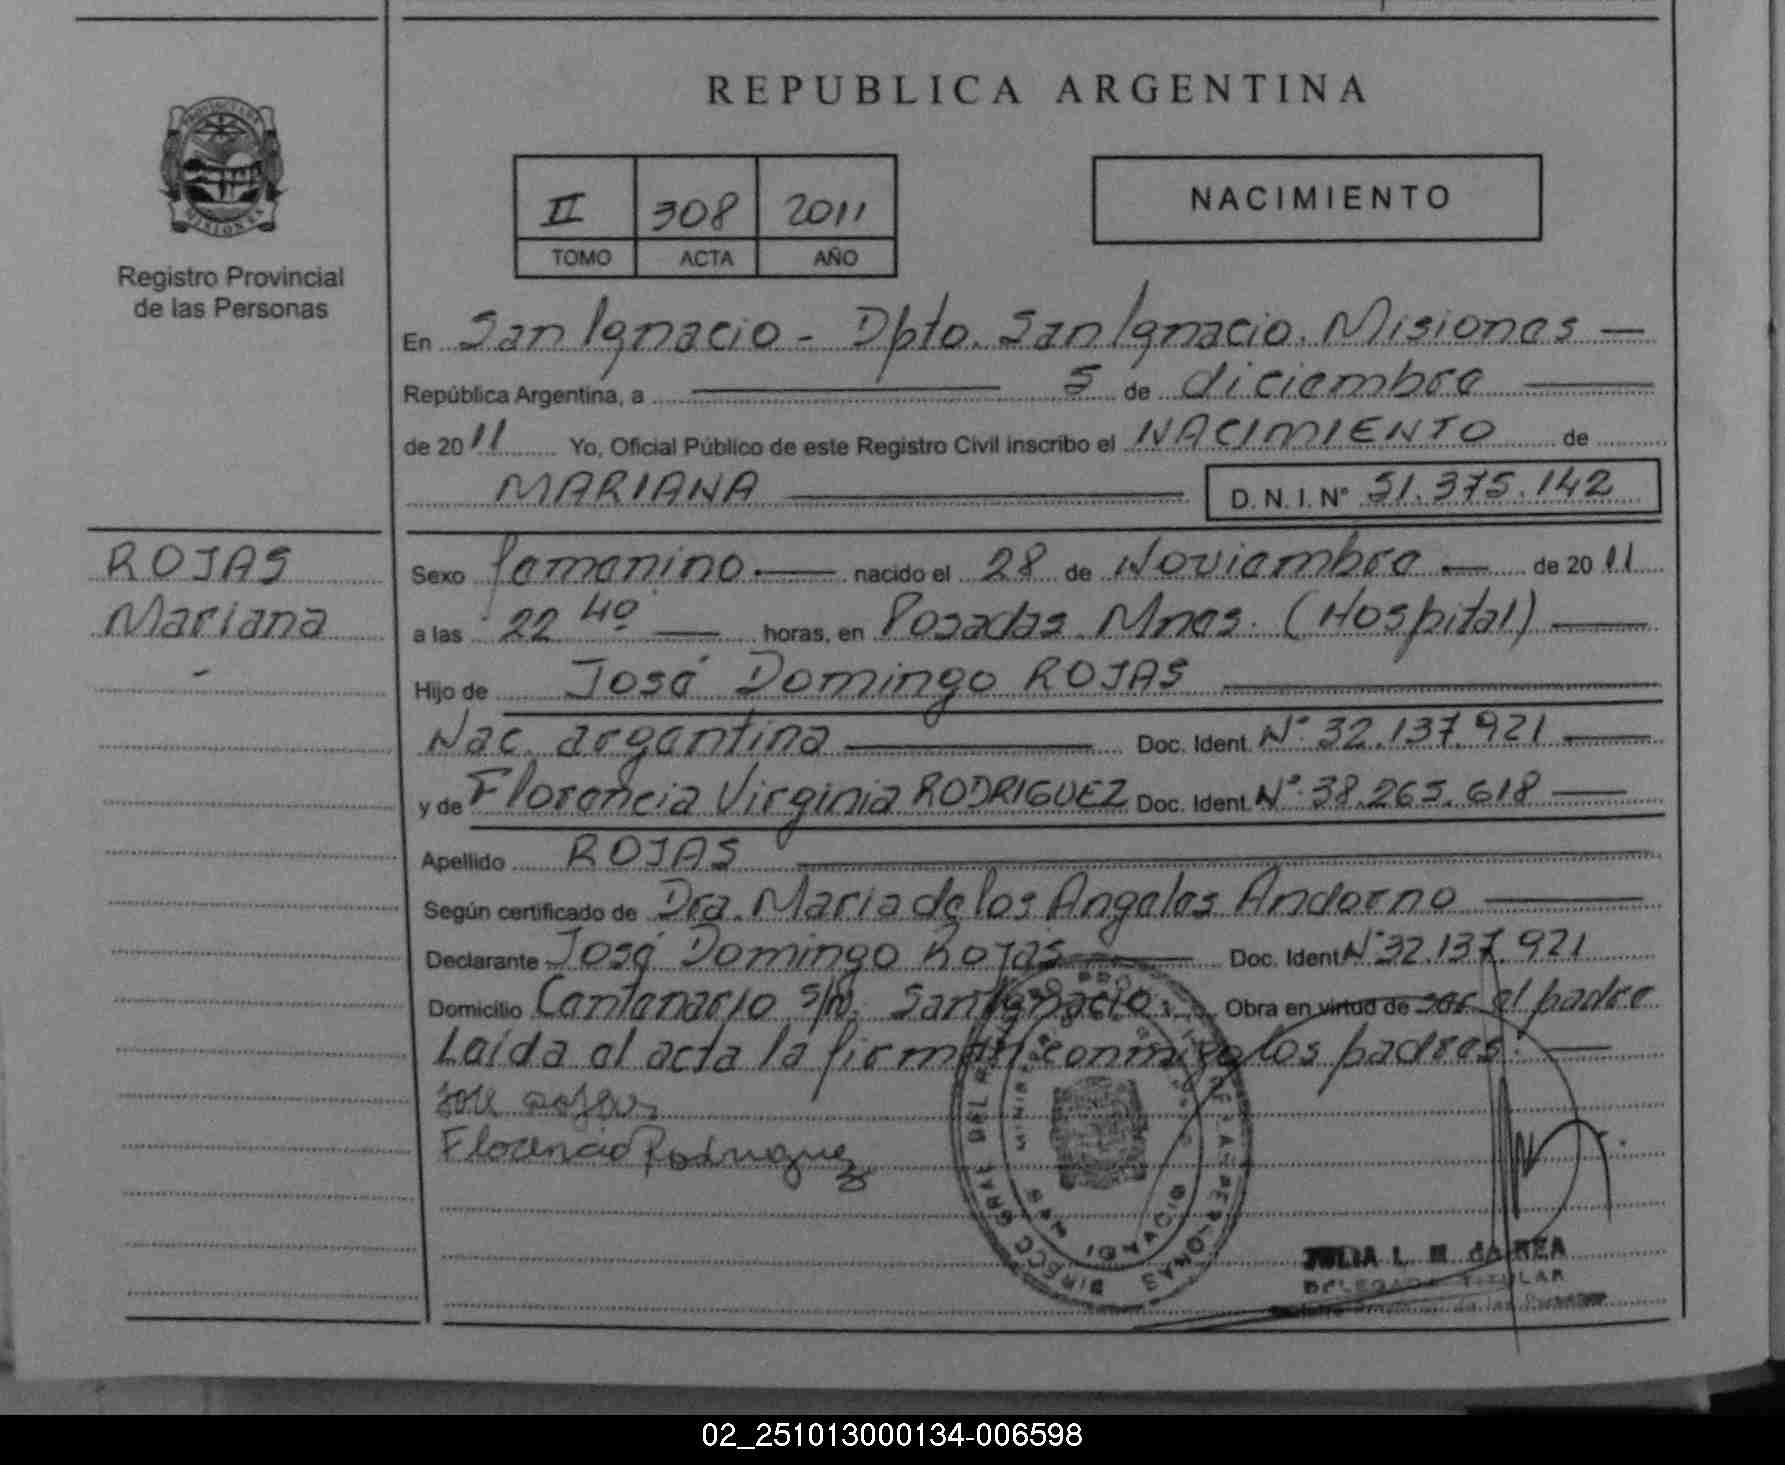 REPUBLICA ARGENTINA
II 308 2011
TOMO ACTA AÑO
NACIMIENTO
Registro Provincial
de las Personas
En San Ignacio - Dpto. San Ignacio. Misiones —
República Argentina, a 5 de diciembre
de 2011 Yo, Oficial Público de este Registro Civil inscribo el NACIMIENTO de
MARIANA D. N. I. Nº 51.375.142
ROJAS
Mariana
Sexo femenino. — nacido el 28 de Noviembre — de 2011
a las 22 40 — horas, en Posadas Mnes. (Hospital) —
Hijo de José Domingo ROJAS
Nac. argentina — Doc. Ident. Nº 32.137.921 —
y de Florencia Virginia RODRIGUEZ Doc. Ident. Nº 38.265.618 —
Apellido ROJAS
Según certificado de Dra. Maria de los Angeles Andorno —
Declarante José Domingo Rojas — Doc. Ident Nº 32.137.921
Domicilio Centenario s/n. San Ignacio. Obra en virtud de ser el padre
Leída el acta la firman conmigo los padres. —
Jose Rojas
Florencia Rodriguez
DIRECC GRAL DEL PERSONAS
JULIA L. M. de REA
DELEGADA TITULAR
de las Personas
02_251013000134-006598